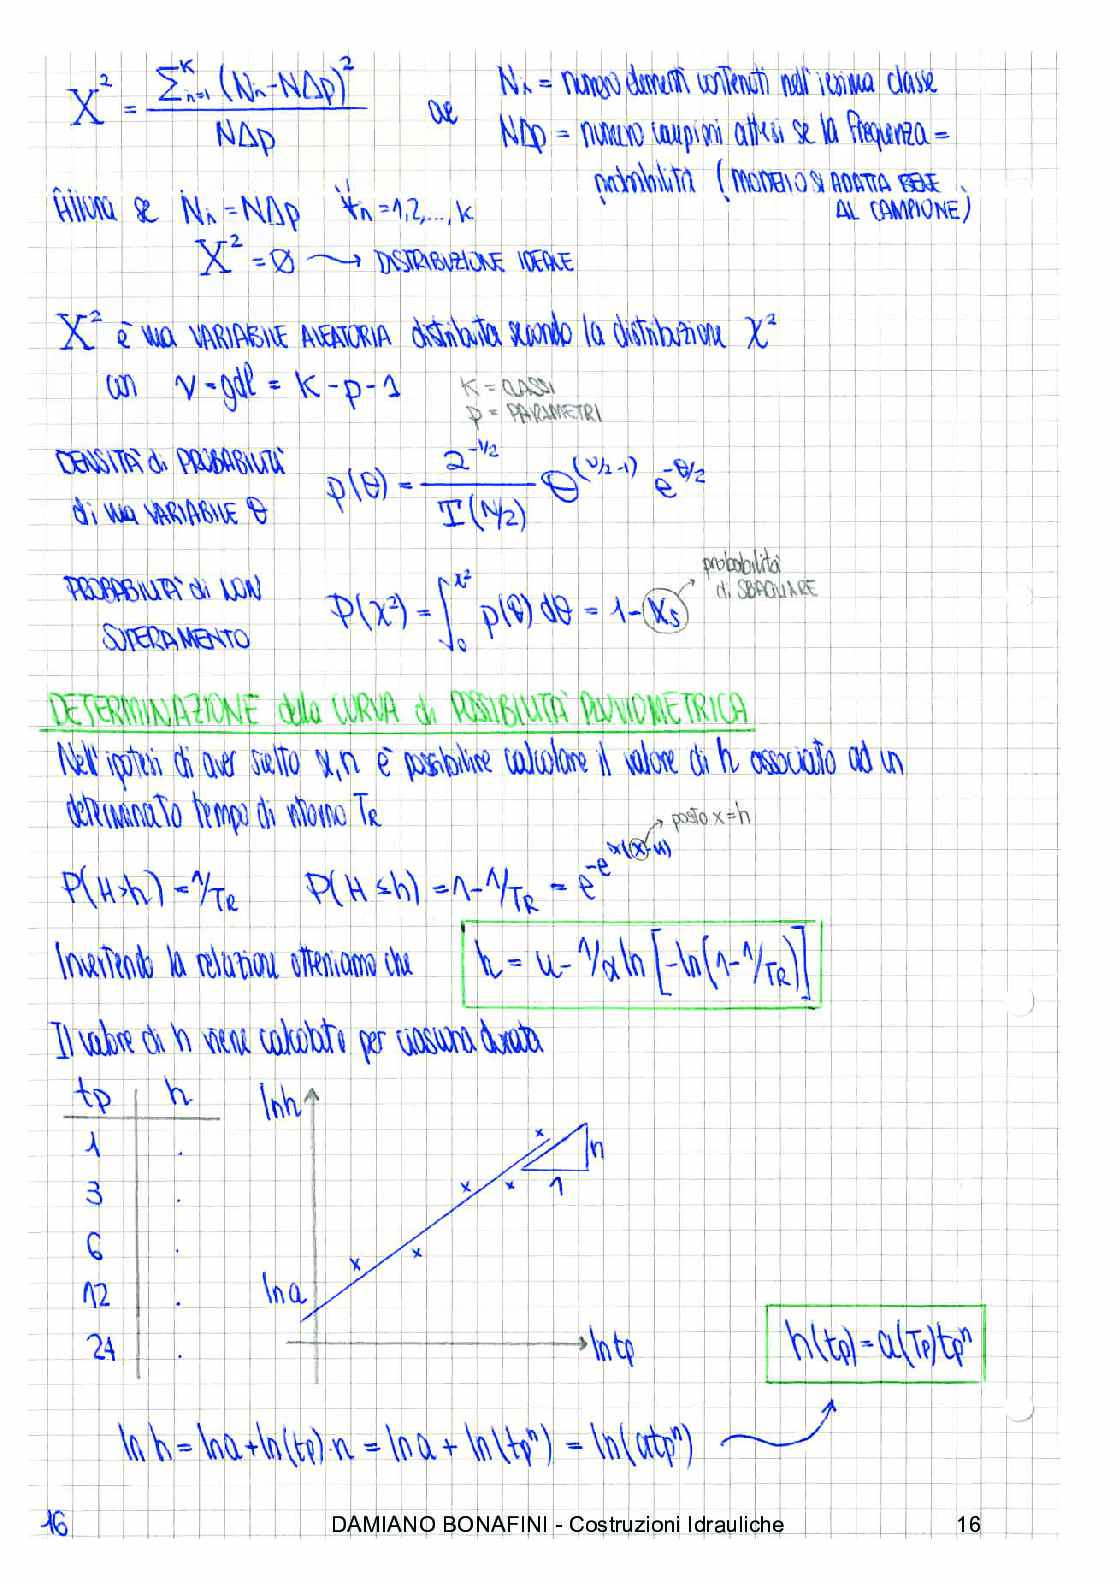 X² = Σⁿ₌₁ᴷ (Nₙ-NΔp)² / NΔp
Nₙ = numero elementi contenuti nell'iesima classe
NΔp = numero campioni attesi se la frequenza =
probabilità (MODELLO SI ADATTA BENE
AL CAMPIONE)
Allora se Nₙ = NΔp ∀ₙ = 1,2,..., K
X² = ∅ → DISTRIBUZIONE IDEALE
X² è una VARIABILE ALEATORIA distribuita secondo la distribuzione χ²
con ν = gdl = K - p - 1
K = CLASSI
p = PARAMETRI
DENSITÀ di PROBABILITÀ
di una VARIABILE θ
p(θ) = 2^(-1/2) / Γ(ν/2) θ^(ν/2-1) e^(-θ/2)
PROBABILITÀ di NON
SUPERAMENTO
P(χ²) = ∫₀^χ² p(θ) dθ = 1-αs
probabilità
di SBAGLIARE
DETERMINAZIONE della CURVA di POSSIBILITÀ PLUVIOMETRICA
Nell'ipotesi di aver scelto α, n è possibilire calcolare il valore di h associato ad un
determinato tempo di ritorno TR
posto x = h
P(H>h) = 1/TR P(H ≤ h) = 1-1/TR = e^(-e^(α(x-u)))
Invertendo la relazione otteniamo che h = u - 1/α ln [-ln(1-1/TR)]
Il valore di h viene calcolato per ciascuna durata
tp h
1 .
3 .
6 .
12 .
24 .
ln h
n
1
ln a
ln tp
h(tp) = a(Tp)tpⁿ
ln h = ln a + ln(tp)·n = ln a + ln(tpⁿ) = ln(atpⁿ)
16
DAMIANO BONAFINI - Costruzioni Idrauliche 16